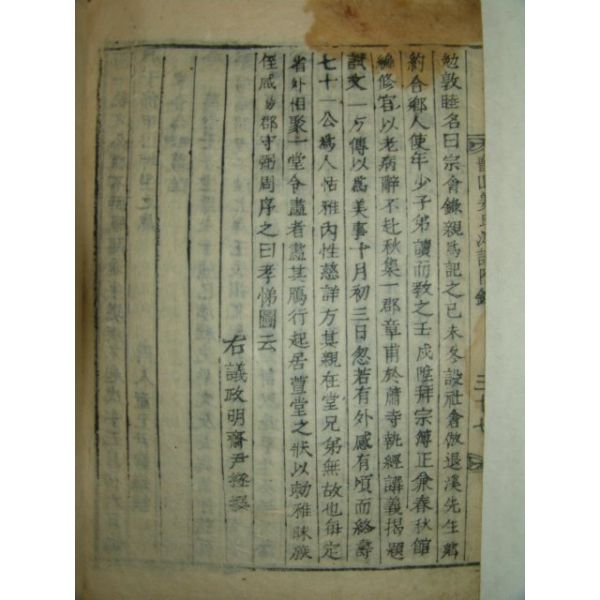 勉敦睦名曰宗會錄親爲記之已未冬設社會倣退溪先生鄕
約合鄕人使年少子弟讀而敎之壬戌陞拜宗簿正兼春秋館
編修官以老病辭不赴秋集一郡章甫於蕭寺執經講義揭題
試文一方傳以爲美事十月初三日忽若有外感有頃而終壽
七十一公爲人恬雅內性慈詳方其親在堂兄弟無故也每定
省外怡聚一堂令畵者畵其鴈行起居萱堂之狀以
族
侄咸昜郡守弼周序之曰孝悌圖云
右議政明齋尹拯撰
晉山姜氏派譜附錄
三十七